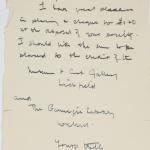 I have great pleasure
in placing a cheque for £100
at the disposal of your society.
I should like the sum to be
placed to the credit of the
Museum & Art Gallery
and
The Carnegie Library
Yours